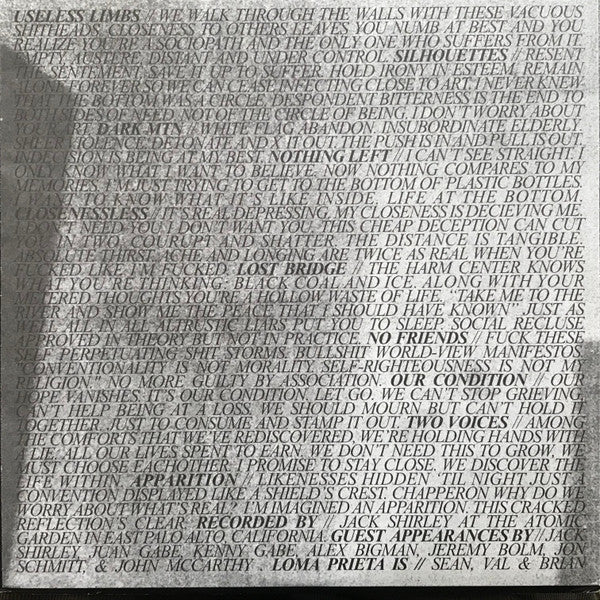 USELESS LIMBS // WE WALK THROUGH THE WALLS WITH THESE VACUOUS
SHITHEADS. CLOSENESS TO OTHERS LEAVES YOU NUMB AT BEST AND YOU
REALIZE YOU'RE A SOCIOPATH AND THE ONLY ONE WHO SUFFERS FROM IT.
EMPTY, AUSTERE, DISTANT AND UNDER CONTROL. SILHOUETTES // RESENT
THE SENTEMENT. SAVE IT UP TO SUFFER. HOLD IRONY IN ESTEEM, REMAIN
ALONE FOREVER SO WE CAN CEASE INFECTING CLOSE TO ART. I NEVER KNEW
THAT THE BOTTOM WAS A CIRCLE. DESPONDENT BITTERNESS IS THE END TO
BOTH SIDES OF NEED, NOT OF THE CIRCLE OF BEING. I DON'T WORRY ABOUT
YOUR ART. DARK MTN // WHITE FLAG ABANDON. INSUBORDINATE ELDERLY.
SHEER VIOLENCE, DETONATE AND X IT OUT. THE PUSH IS IN AND PULL IS OUT.
INDECISION IS BEING AT MY BEST. NOTHING LEFT // I CAN'T SEE STRAIGHT. I
ONLY KNOW WHAT I WANT TO BELIEVE. NOW NOTHING COMPARES TO MY
MEMORIES. I'M JUST TRYING TO GET TO THE BOTTOM OF PLASTIC BOTTLES.
I WANT TO KNOW WHAT IT'S LIKE INSIDE, LIFE AT THE BOTTOM.
CLOSENESSLESS // IT'S REAL DEPRESSING, MY CLOSENESS IS DECIEVING ME.
I DON'T NEED YOU, I DON'T WANT YOU. THIS CHEAP DECEPTION CAN CUT
YOU IN TWO, COURUPT AND SHATTER. THE DISTANCE IS TANGIBLE.
ABSOLUTE THIRST, ACHE AND LONGING ARE TWICE AS REAL WHEN YOU'RE
FUCKED LIKE I'M FUCKED. LOST BRIDGE // THE HARM CENTER KNOWS
WHAT YOU'RE THINKING: BLACK COAL AND ICE. ALONG WITH YOUR
METERED THOUGHTS YOU'RE A HOLLOW WASTE OF LIFE. "TAKE ME TO THE
RIVER AND SHOW ME THE PEACE THAT I SHOULD HAVE KNOWN" JUST AS
WELL, ALL IN ALL ALTRUSTIC LIARS PUT YOU TO SLEEP. SOCIAL RECLUSE
APPROVED IN THEORY BUT NOT IN PRACTICE. NO FRIENDS // FUCK THESE
SELF PERPETUATING SHIT STORMS BULLSHIT WORLD-VIEW MANIFESTOS
"CONVENTIONALITY IS NOT MORALITY. SELF-RIGHTEOUSNESS IS NOT MY
RELIGION" NO MORE GUILTY BY ASSOCIATION. OUR CONDITION // OUR
HOPE VANISHES. IT'S OUR CONDITION. LET GO. WE CAN'T STOP GRIEVING
CAN'T HELP BEING AT A LOSS. WE SHOULD MOURN BUT CAN'T HOLD IT
TOGETHER. JUST TO CONSUME AND STAMP IT OUT. TWO VOICES // AMONG
THE COMFORTS THAT WE'VE REDISCOVERED, WE'RE HOLDING HANDS WITH
A LIE. ALL OUR LIVES SPENT TO EARN. WE DON'T NEED THIS TO GROW, WE
MUST CHOOSE EACHOTHER. I PROMISE TO STAY CLOSE. WE DISCOVER THE
LIFE WITHIN. APPARITION // LIKENESSES HIDDEN 'TIL NIGHT JUST A
CONVENTION DISPLAYED LIKE A SHIELD'S CREST. CHAPPERON WHY DO WE
WORRY ABOUT WHAT'S REAL? I'M IMAGINED AN APPARITION, THIS CRACKED
REFLECTION'S CLEAR. RECORDED BY // JACK SHIRLEY AT THE ATOMIC
GARDEN IN EAST PALO ALTO, CALIFORNIA. GUEST APPEARANCES BY // JACK
SHIRLEY, JUAN GABE, KENNY GABE, ALEX BIGMAN, JEREMY BOLM, JON
SCHMITT, & JOHN MCCARTHY. LOMA PRIETA IS // SEAN, VAL & BRIAN